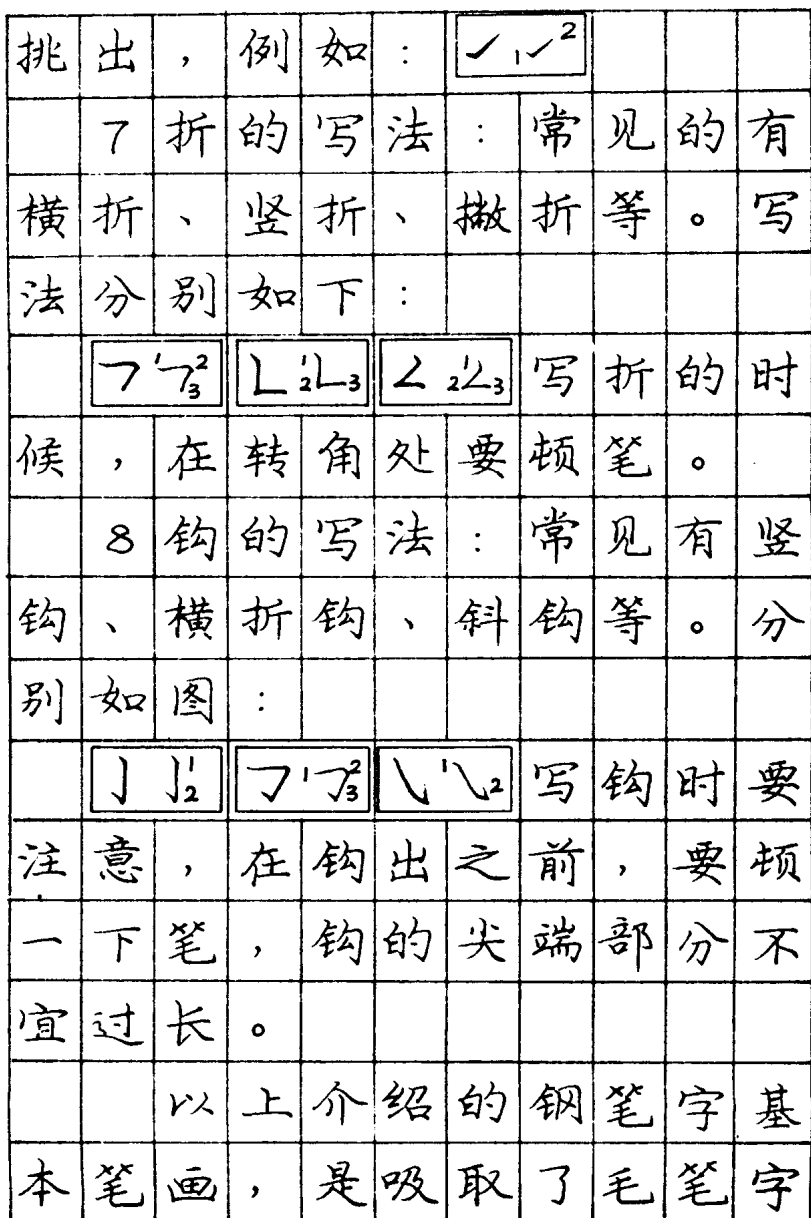 挑出，例如：✓ 1✓2
7折的写法：常见的有
横折、竖折、撇折等。写
法分别如下：
㇕ 1㇕23 ㇗ 12㇗3 ㇜ 12㇜3 写折的时
候，在转角处要顿笔。
8钩的写法：常见有竖
钩、横折钩、斜钩等。分
别如图：
亅 亅12 ㇆ 1㇆23 ㇂ 1㇂2 写钩时要
注意，在钩出之前，要顿
一下笔，钩的尖端部分不
宜过长。
以上介绍的钢笔字基
本笔画，是吸取了毛笔字